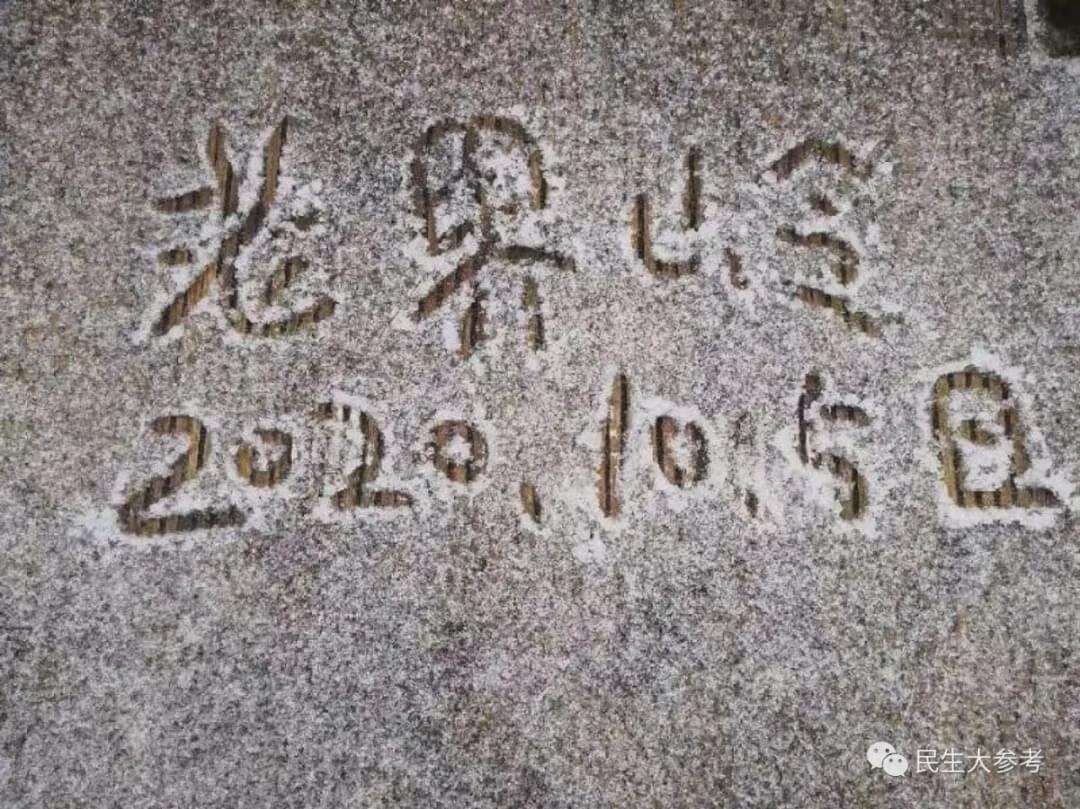 老界岭
2020.10.5日
民生大参考